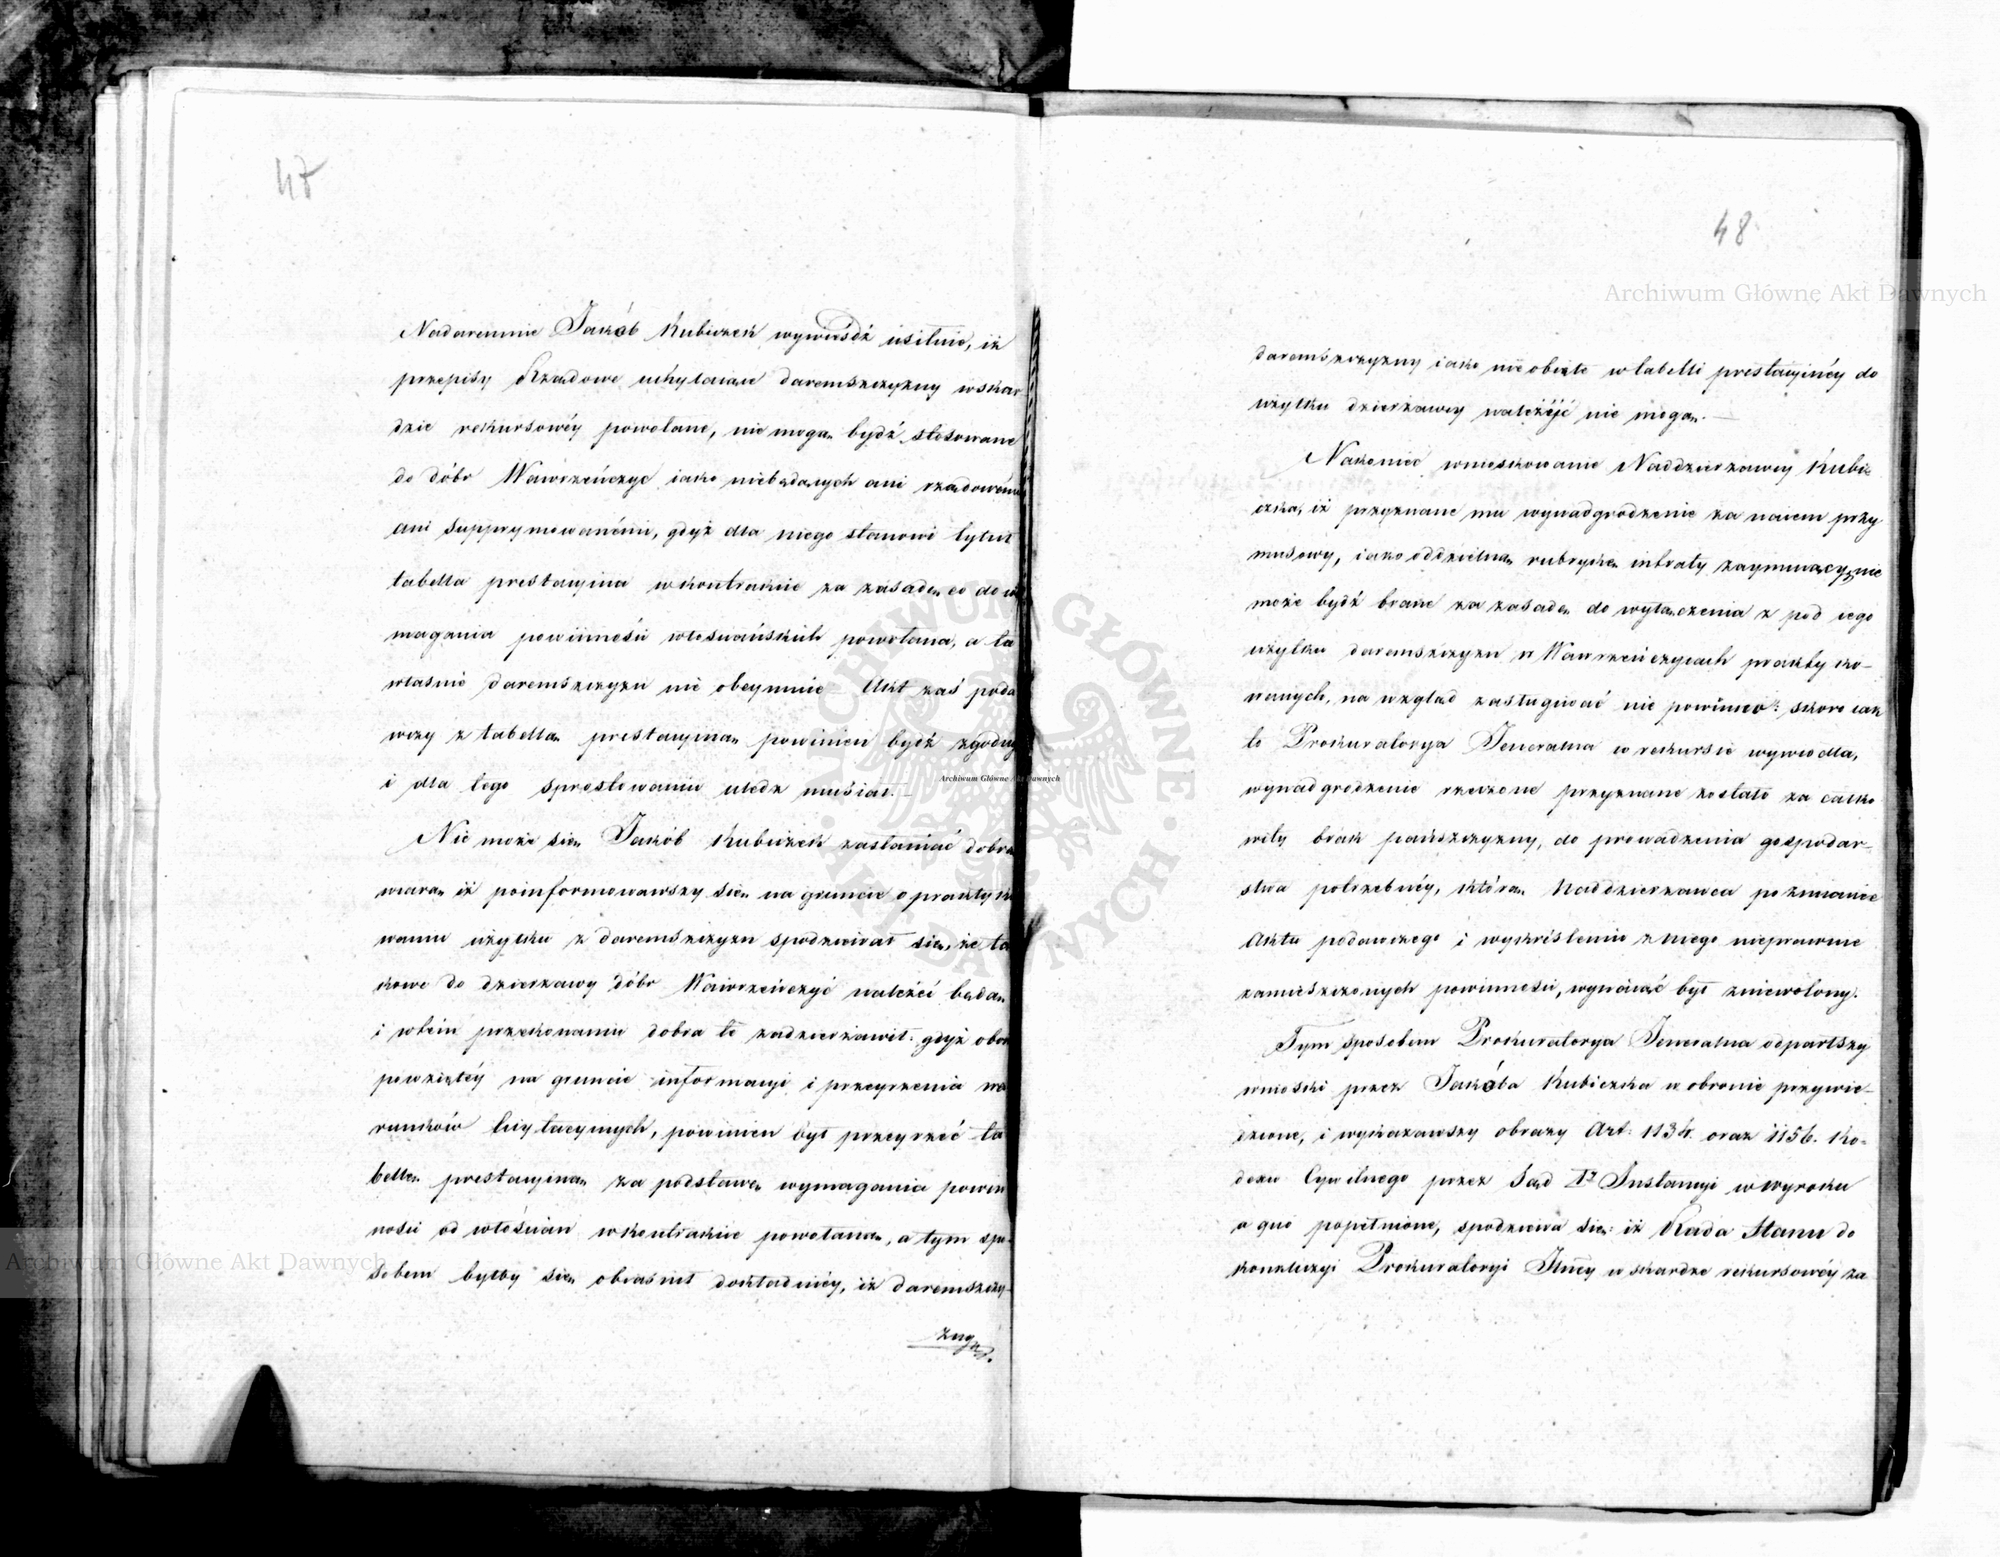 47
Nadaremnie Jakób Kubiczek wywieśdź usilnie, iż
przepisy Rządowe uchylaiące daremszczyzny w skar
dzie rekursowéy powołane, nie mogą bydź stosowane
do dóbr Wawrzeńczyc iako niebędących ani rządowémi
ani supprymowanémi, gdyż dla niego stanowi tytuł
tabella prestacyina w kontrakcie za zasadę co do wy
magania powinności włościańskich powołana, a ta
właśnie daremszczyzn nie obeymuie Akt zaś poda
wczy z tabellą prestacyiną powinien bydź zgodny
i dla tego sprostowaniu uledz musiał.
Nie może się Jakób Kubiczek zasłaniać dobrą
wiarą iż poinformowawszy się na gruncie o praktyko
waniu użytku z daremszczyzn spodziewał się, że ta
kowe do dzierżawy dóbr Wawrzeńczyc należeć będą
i w tém przekonaniu dobra te zadzierżawił: gdyż obok
powziętéy na gruncie informacyi i przeyrzenia wa
runków licytacyinych, powinien był przeyrzeć ta
bellę prestacyiną za podstawę wymagania powin
ności od włościan w kontrakcie powołaną, a tym spo-
sobem byłby się obiaśnił dokładniéy, iż daremszczy-
zny
48
daremszczyzny iako nie obięte w tabelli prestacyinéy do
użytku dzierżawcy należéć nie mogą.
Nakoniec wnioskowanie Naddzierżawcy Kubi
czka, iż przyznane mu wynadgrodzenie za naiem przy
musowy, iako oddzielną rubrykę intraty zaymuiący, nie
może bydź brane za zasadę do wyłączenia z pod iego
użytku daremszczyzn w Wawrzeńczycach praktyko-
wanych, na wzgląd zasługiwać nie powinno: skoro iak
to Prokuratorya Jeneralna w rekursie wywiodła,
wynadgrodzenie rzeczone przyznane zostało za całko
wity brak pańszczyzny, do prowadzenia gospodar-
stwa potrzebnéy, którą Naddzierżawca po zmianie
Aktu podawczego i wykréśleniu z niego nieprawnie
zamieszczonych powinności, wynaiąć był zniewolony.
Tym sposobem Prokuratorya Jeneralna odpartszy
wnioski przez Jakóba Kubiczka w obronie przywie-
dzione, i wykazawszy obrazy Art: 1134. oraz 1156. Ko-
dexu Cywilnego przez Sąd I Instancyi w wyroku
a quo popełnione, spodziewa się: iż Rada Stanu do
konkluzyi Prokuratoryi Jlnéy w skardze rekursowéy za
Archiwum Główne Akt Dawnych